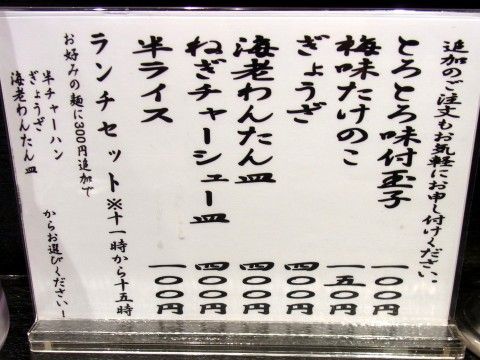 追加のご注文もお気軽にお申し付けください。
とろとろ味付玉子 一〇〇円
梅味たけのこ 一五〇円
ぎょうざ 四〇〇円
海老わんたん皿 四〇〇円
ねぎチャーシュー皿 四〇〇円
半ライス 一〇〇円
ランチセット※十一時から十五時
お好みの麺に300円追加で
半チャーハン
ぎょうざ
海老わんたん皿
からお選びください！